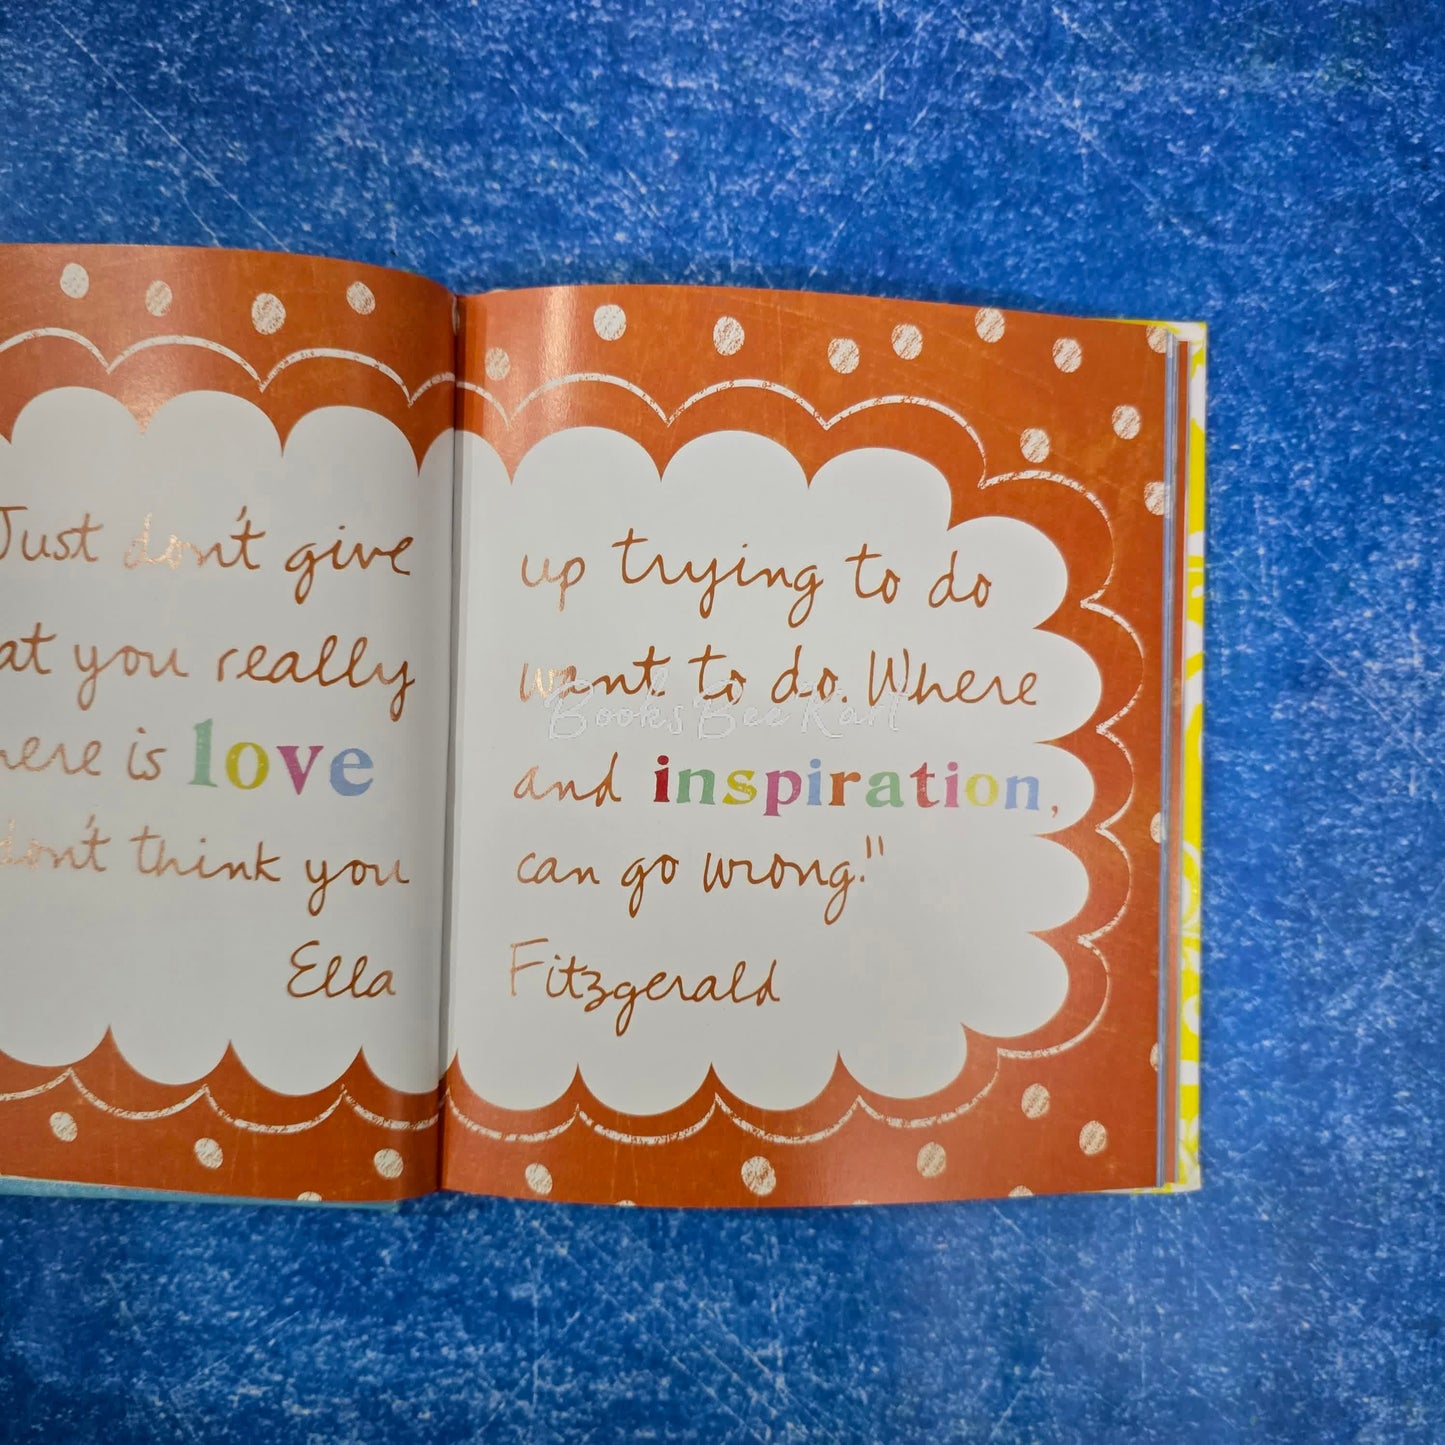 Just don't give up trying to do
at you really want to do. Where
ere is love and inspiration,
don't think you can go wrong."
Ella Fitzgerald
Books Bee Kart